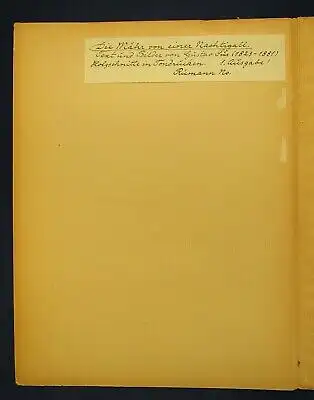 Die Mähr von einer Nachtigall.
Text und Bilder von Gustav Süs (1823-1881)
Holzschnitte in Tondrucken. 1. Ausgabe!
Rümann No.